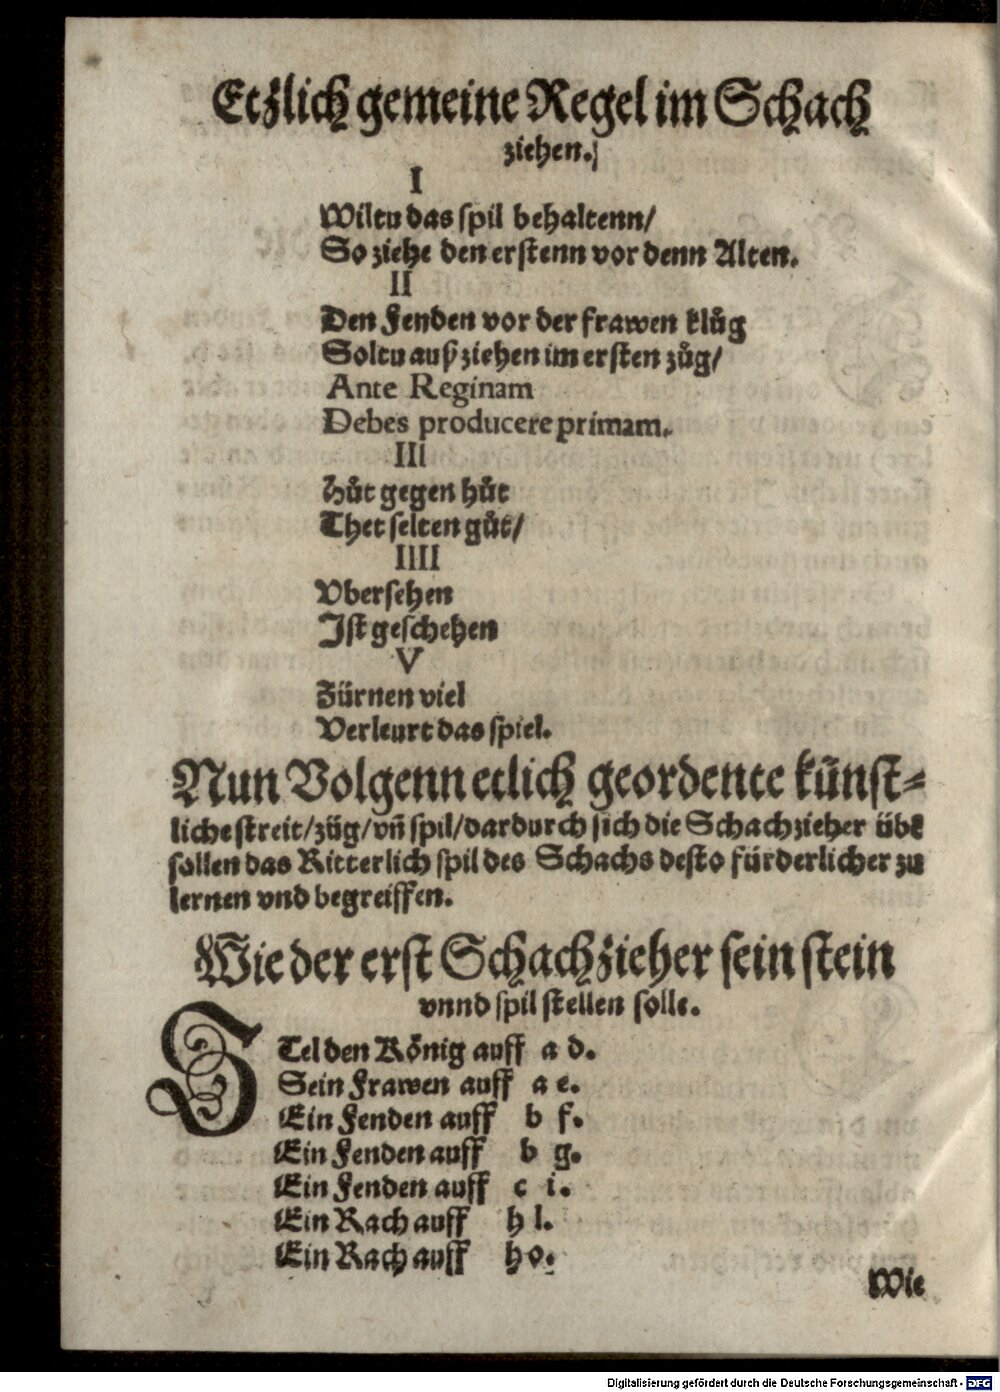 Etzlich gemeine Regel im Schach
ziehen.
I
Wiltu das spil behaltenn/
So ziehe den erstenn vor denn Alten.
II
Den Fenden vor der frawen klůg
Soltu außziehen im ersten zůg/
Ante Reginam
Debes producere primam.
III
Hůt gegen hůt
Thet selten gůt/
IIII
Vbersehen
Ist geschehen
V
Zürnen viel
Verleurt das spiel.
Nun Volgenn etlich geordente künst-
liche streit/züg/vñ spil/dardurch sich die Schachzieher übē
sollen das Ritterlich spil des Schachs desto fürderlicher zu
lernen vnd begreiffen.
Wie der erst Schachzieher sein stein
vnnd spil stellen solle.
STel den König auff a d.
Sein Frawen auff a e.
Ein Fenden auff b f.
Ein Fenden auff b g.
Ein Fenden auff c i.
Ein Rach auff h l.
Ein Rach auff h o.
Wie
Digitalisierung gefördert durch die Deutsche Forschungsgemeinschaft - DFG